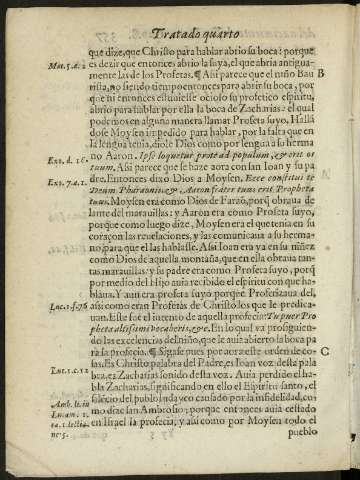 Tratado quarto
que dize, que Christo para hablar abrio su boca: porque
Mat. 5. a. 2
es dezir que entonces abrio la suya, el que abria antigua-
mente las de los Profetas. ¶ Assi parece que el niño Bau B
tista, no siendo tiempo entonces para abrir su boca, por
que ni entonces estuuiesse ocioso su profetico espiritu
abrio para hablar por ella la boca de Zacharias: el qual
podemos en alguna manera llamar Profeta suyo. Halla
dose Moysen impedido para hablar, por la falta que en
la lengua tenia, diole Dios como por lengua a su herma-
Exo. d. 16.
no Aaron. Ipse loquetur pro te ad populum, & erit os
tuum. Assi parece que se haze aora con san Ioan y su pa
Exo. 7. a. 1.
dre. Entonces dixo Dios a Moysen. Ecce constitui te
Deum Pharaonis, & Aaron frater tuus erit Propheta
tuus. Moysen era como Dios de Farao, porq̃ obraua de
lante del marauillas: y Aaron era como Profeta suyo,
porque como luego dize, Moysen era el que tenia en su
coraçon las reuelaciones, y las comunicaua a su herma-
no, para que el las hablasse. Assi Ioan era ya en su niñez
como Dios de aquella montaña, que en ella obraua tan-
tas marauillas: y su padre era como Profeta suyo, porq̃
por medio del Hijo auia recibido el espiritu con que ha-
blaua. Y aun era profeta suyo porque Profetizaua del,
Luc. 1. f. 76
assi como eran Profetas de Christo los que le predica-
uan. Este fue el intento de aquella profecia: Tu puer Pro
pheta altissimi vocaberis, &c. En lo qual va prosiguien-
do las excelencias del niño, que le auia abierto la boca pa
ra la profecia. ¶ Sigase pues por aora este orden de co- C
sas. Es Christo palabra del Padre, es Ioan voz desta pala
Luc. 1. c. 12
bra, es Zacharias sonido desta voz. Auia perdido el ha-
bla Zacharias, significando en ello el Espiritu santo, el
Amb. li. in
silẽcio del pueblo Iudayco causado por la infidelidad, co
Lucam. 1.
mo dize san Ambrosio; porque entonces auia cessado
ca. 1. lectio-
en Israel la profecia, y assi como por Moysen todo el
ne 5.
pueblo